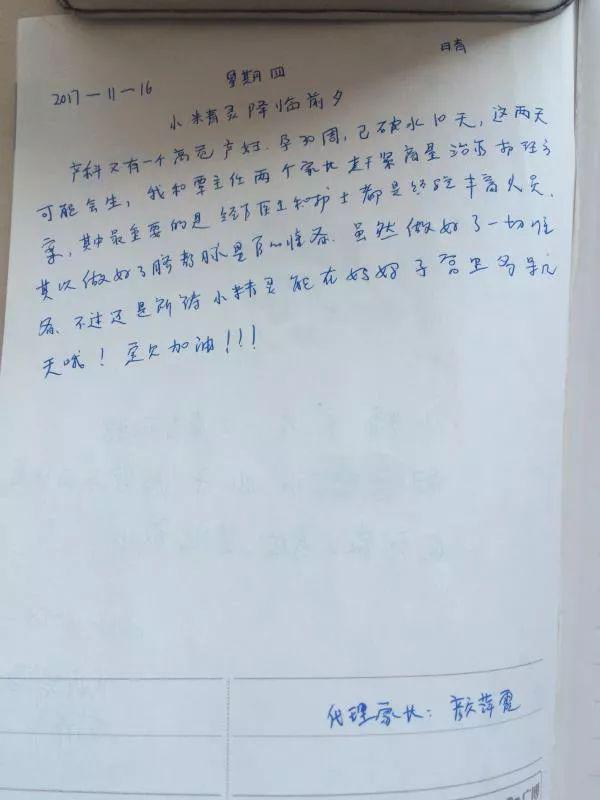 2017—11—16 星期四 晴
小精灵降临前夕
产科又有一个高危产妇.孕30周,已破水10天,这两天
可能会生,我和覃主任两个家长赶紧商量治疗护理方
案,其中最重要的是经治医生和护士都是经验丰富人员.
其次做好了脐静脉置管准备.虽然做好了一切准
备.不过还是祈祷小精灵能在妈妈子宫里多呆几
天哦!宝贝加油!!!
代理家长:颜萍霞